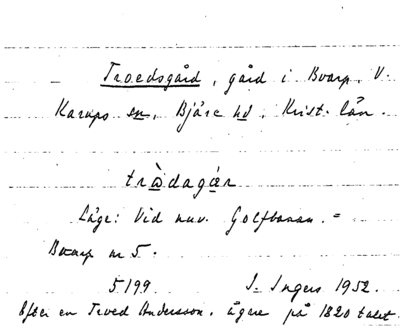 Troedsgård, gård i Boarp, V.
Karups sn, Bjäre hd, Krist. län.
tròdagár
Läge: Vid nuv. Golfbanan. =
Boarp nr 5.
5199 I. Ingers 1952.
Efter en Troed Andersson, ägare på 1820 talet.